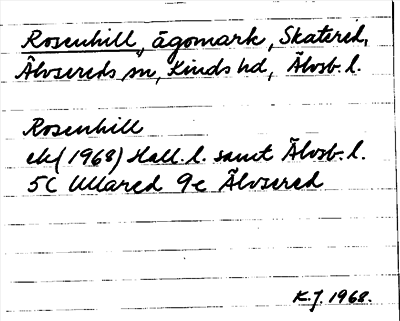 Rosenhill, ägomark, Skatered,
Älvsereds sn, Kinds hd, Älvsb. l.
Rosenhill
ek (1968) Hall. l. samt Älvsb. l.
5C Ullared 9e Älvsered
K.J. 1968.